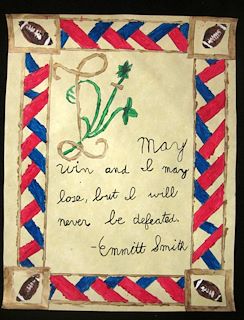 I May
win and I may
lose, but I will
never be defeated.
-Emmitt Smith